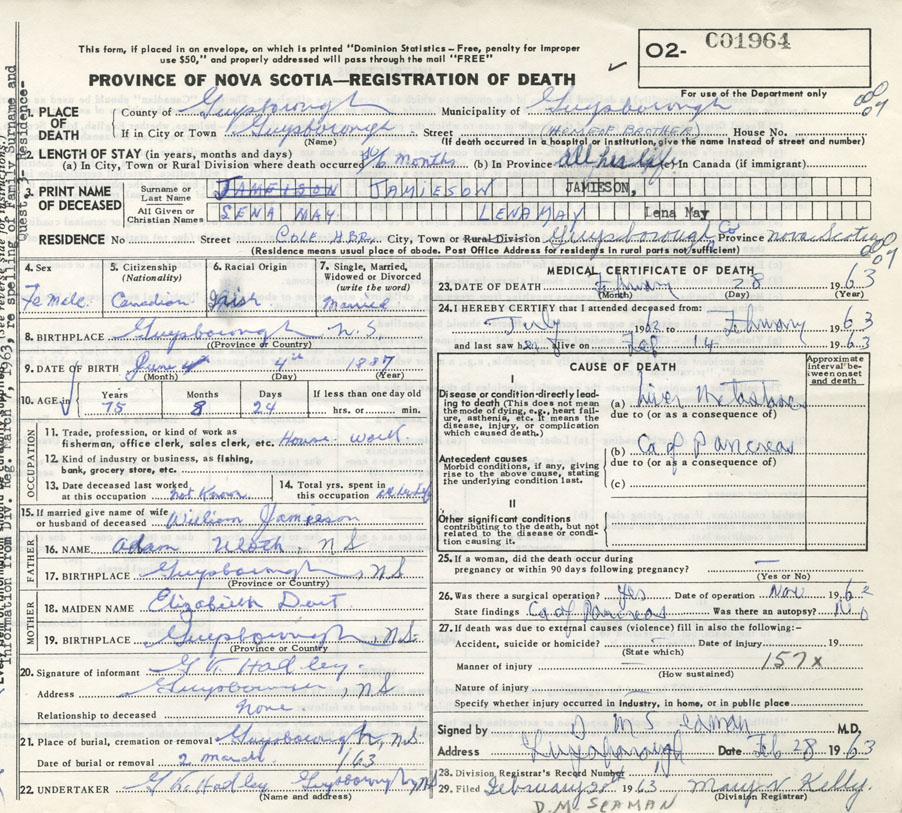 This form, if placed in an envelope, on which is printed "Dominion Statistics - Free, penalty for improper
use $50," and properly addressed will pass through the mail "FREE"
PROVINCE OF NOVA SCOTIA—REGISTRATION OF DEATH
O2- C01964
For use of the Department only
1. PLACE OF DEATH
County of Guysborough Municipality of Guysborough
If in City or Town Guysborough Street (HOME OF BROTHER) House No.
(Name) (If death occurred in a hospital or institution, give the name instead of street and number)
2. LENGTH OF STAY (in years, months and days)
(a) In City, Town or Rural Division where death occurred 6 months (b) In Province all her life (c) In Canada (if immigrant)
3. PRINT NAME OF DECEASED
Surname or Last Name JAMEISON JAMIESON JAMIESON,
All Given or Christian Names SENA MAY LENA MAY Lena May
RESIDENCE No Street COLE HBR. City, Town or Rural Division Guysborough Co Province Nova Scotia
(Residence means usual place of abode. Post Office Address for residents in rural parts not sufficient)
4. Sex Female
5. Citizenship (Nationality) Canadian
6. Racial Origin Irish
7. Single, Married, Widowed or Divorced (write the word) Married
8. BIRTHPLACE Guysborough N.S.
(Province or Country)
9. DATE OF BIRTH June 4 4th 1887
(Month) (Day) (Year)
10. AGE in Years 75 Months 8 Days 24 If less than one day old hrs. or min.
OCCUPATION
11. Trade, profession, or kind of work as
fisherman, office clerk, sales clerk, etc. House work
12. Kind of industry or business, as fishing,
bank, grocery store, etc.
13. Date deceased last worked at this occupation not known
14. Total yrs. spent in this occupation all her life
15. If married give name of wife
or husband of deceased William Jameson
FATHER
16. NAME Adam Uloth, NS
17. BIRTHPLACE Guysborough, NS
(Province or Country)
MOTHER
18. MAIDEN NAME Elizabeth Dort
19. BIRTHPLACE Guysborough, NS.
(Province or Country
20. Signature of informant G K Hadley.
Address Guysborough, NS
Relationship to deceased None
21. Place of burial, cremation or removal Guysborough, NS
Date of burial or removal 2 march /63
22. UNDERTAKER G K. Hadley Guysborough, NS
(Name and address)
MEDICAL CERTIFICATE OF DEATH
23. DATE OF DEATH February 28 1963
(Month) (Day) (Year)
24. I HEREBY CERTIFY that I attended deceased from:
July 1962 to February 1963
and last saw her alive on Feb 14 1963
CAUSE OF DEATH
Approximate interval between onset and death
I
Disease or condition directly leading to death (This does not mean the mode of dying, e.g., heart failure, asthenia, etc. It means the disease, injury, or complication which caused death.)
(a) Liver Metastases
due to (or as a consequence of)
Antecedent causes
Morbid conditions, if any, giving rise to the above cause, stating the underlying condition last.
(b) Ca of Pancreas
due to (or as a consequence of)
(c)
II
Other significant conditions
contributing to the death, but not related to the disease or condition causing it.
25. If a woman, did the death occur during
pregnancy or within 90 days following pregnancy? —
(Yes or No)
26. Was there a surgical operation? Yes Date of operation Nov 1962
State findings Ca of Pancreas Was there an autopsy? No
27. If death was due to external causes (violence) fill in also the following:-
Accident, suicide or homicide? Date of injury 19
(State which)
Manner of injury 157x
(How sustained)
Nature of injury
Specify whether injury occurred in industry, in home, or in public place
Signed by D M Seaman M.D.
Address Guysborough Date Feb 28 1963
28. Division Registrar's Record Number
29. Filed February 28th 1963 Mary N Kelly.
(Division Registrar)
D.M. SEAMAN